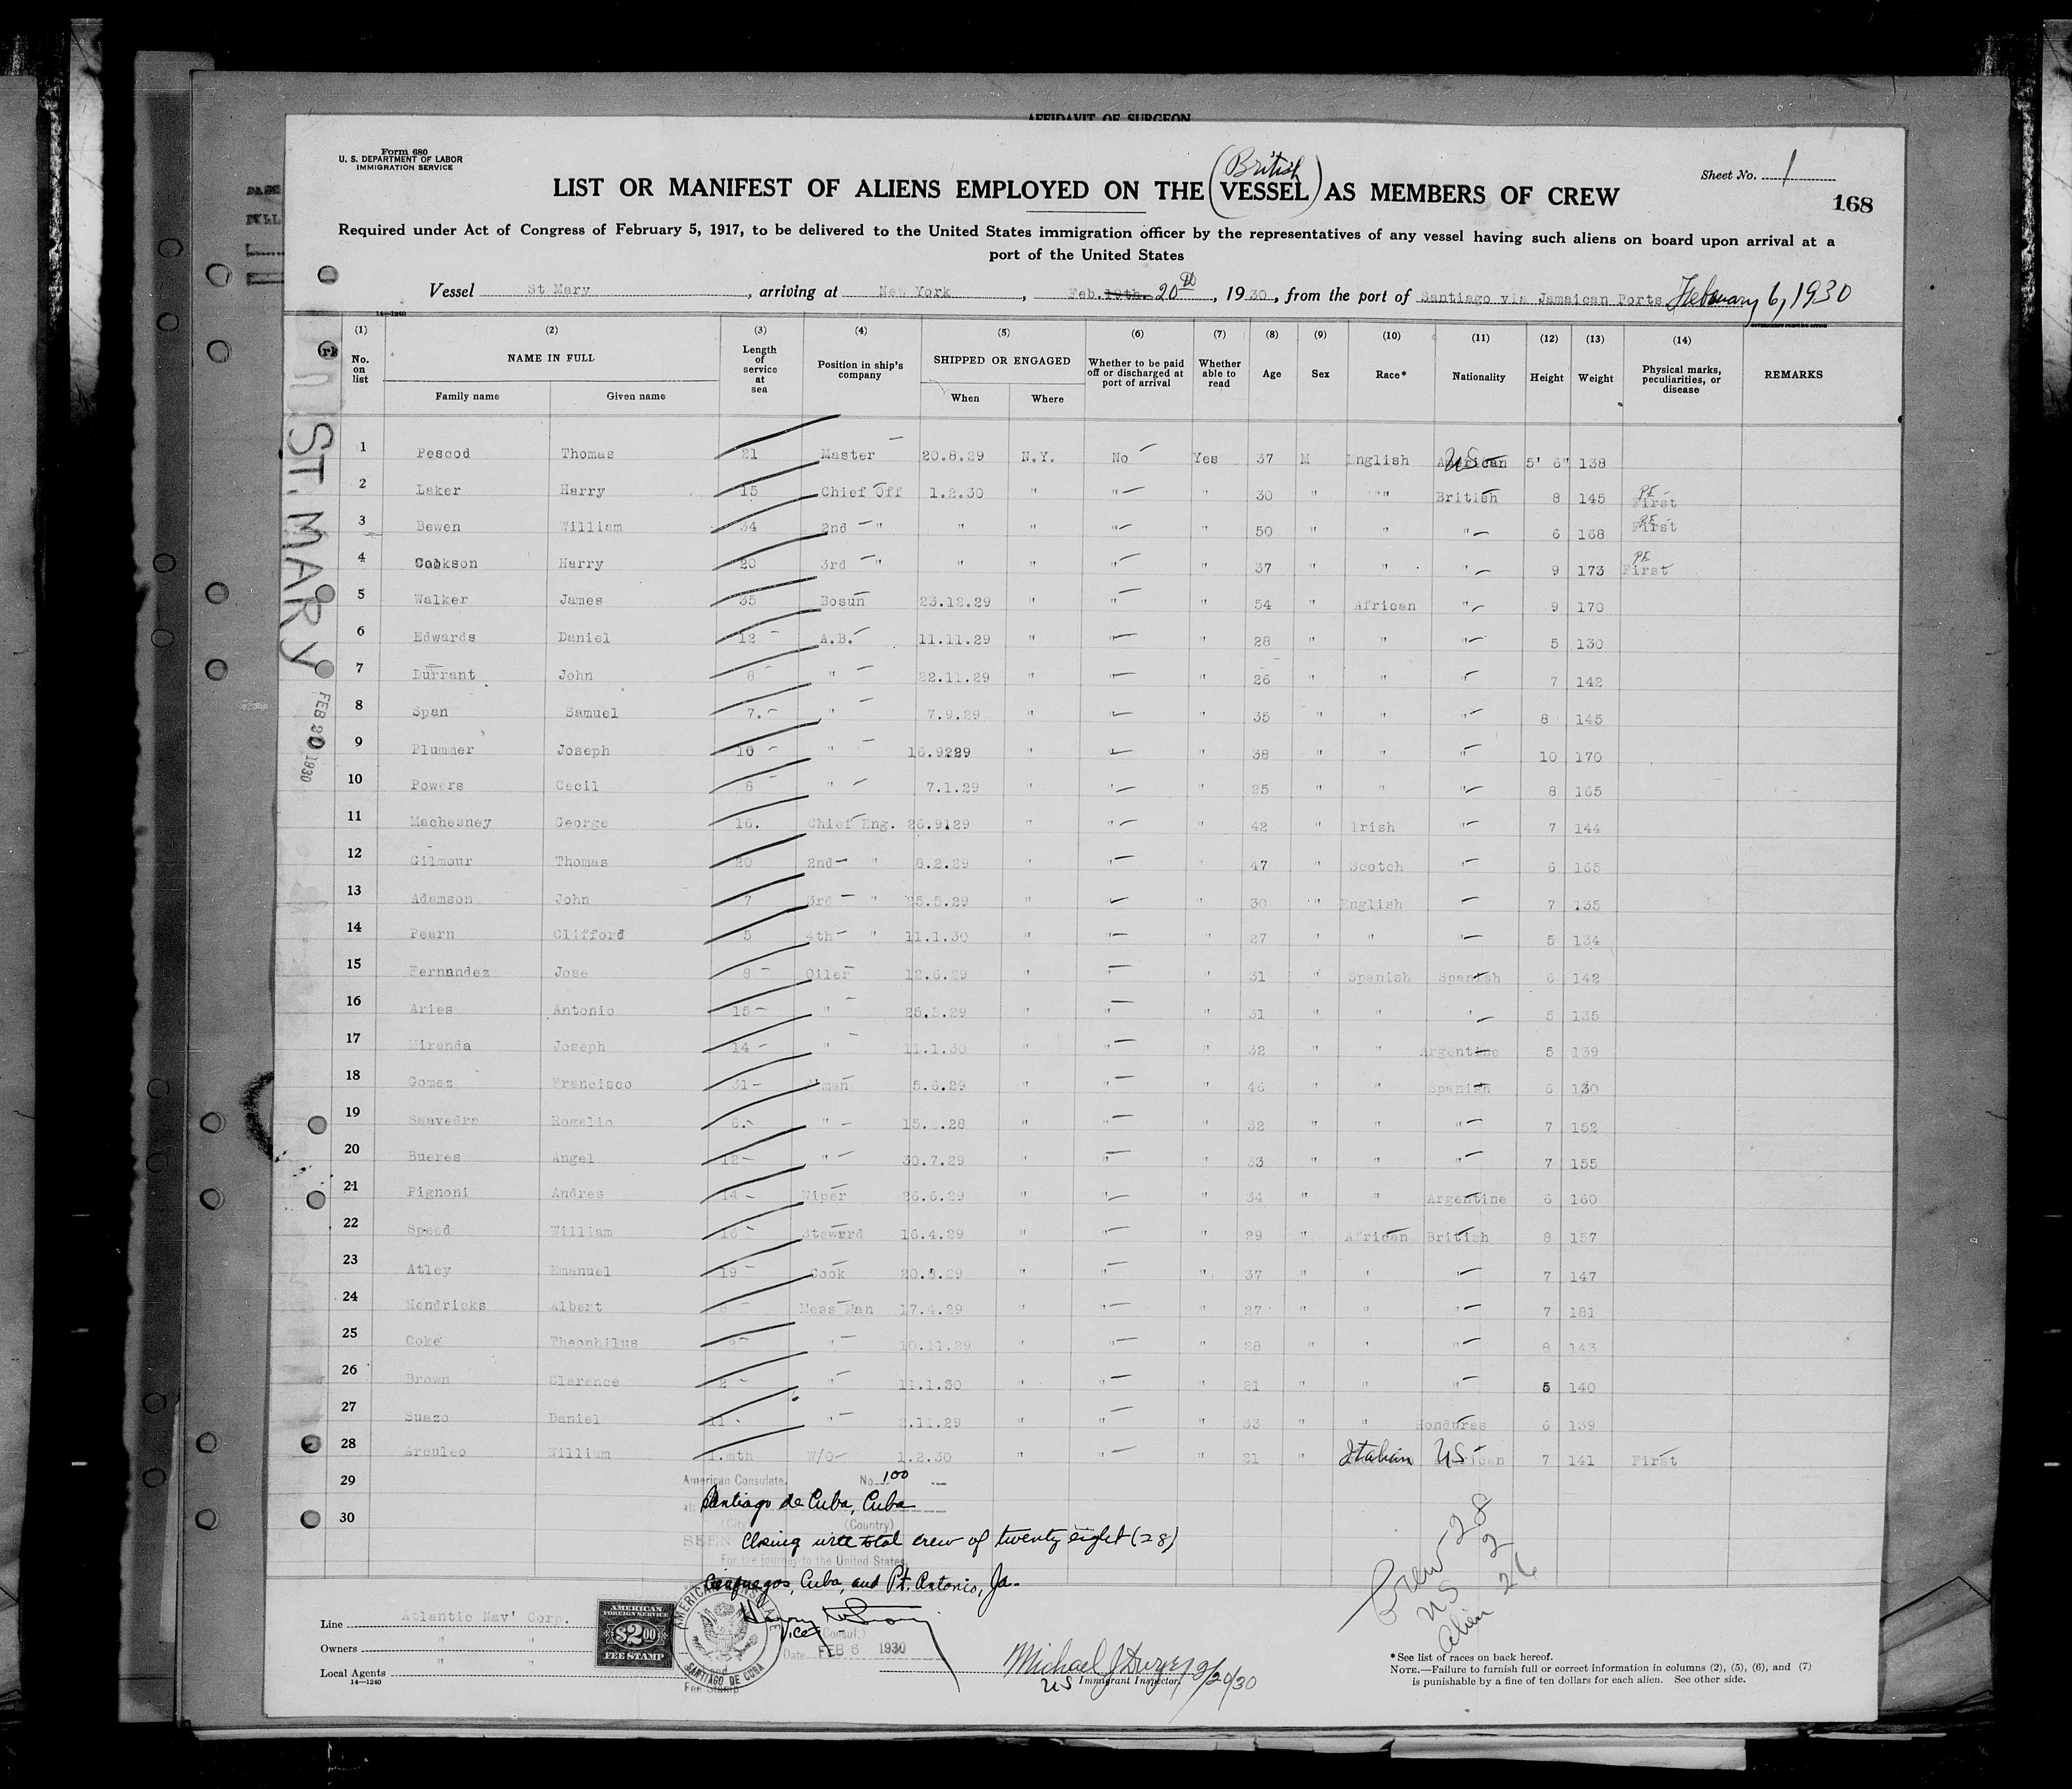 AFFIDAVIT OF SURGEON
Form 680
U. S. DEPARTMENT OF LABOR
IMMIGRATION SERVICE
Sheet No. 1
168
British
LIST OR MANIFEST OF ALIENS EMPLOYED ON THE (VESSEL) AS MEMBERS OF CREW
Required under Act of Congress of February 5, 1917, to be delivered to the United States immigration officer by the representatives of any vessel having such aliens on board upon arrival at a
port of the United States
Vessel St Mary, arriving at New York, Feb. 19th. 20th, 1930, from the port of Santiago via Jamaican Ports February 6, 1930
14—1240
(1) (2) (3) (4) (5) (6) (7) (8) (9) (10) (11) (12) (13) (14)
No. on list NAME IN FULL Length of service at sea Position in ship's company SHIPPED OR ENGAGED Whether to be paid off or discharged at port of arrival Whether able to read Age Sex Race* Nationality Height Weight Physical marks, peculiarities, or disease REMARKS
Family name Given name When Where
1 Pescod Thomas 21 Master 20.8.29 N.Y. No Yes 37 M English American US 5' 6" 138
2 Laker Harry 15 Chief Off 1.2.30 " " " 30 " " " " British 8 145 PE First
3 Bewen William 34 2nd " " " " " 50 " " " 6 168 PE First
4 Cookson Harry 20 3rd " " " " " 37 " " " 9 173 PE First
5 Walker James 35 Bosun 23.12.29 " " " 54 " African " 9 170
6 Edwards Daniel 12 A.B. 11.11.29 " " " 28 " " " 5 130
7 Durrant John 8 " 22.11.29 " " " 26 " " " 7 142
8 Span Samuel 7. " 7.9.29 " " " 35 " " " 8 145
9 Plummer Joseph 10 " 16.9229 " " " 38 " " " 10 170
10 Powers Cecil 8 " 7.1.29 " " " 25 " " " 8 165
11 Machesney George 16. Chief Eng. 26.9129 " " " 42 " Irish " 7 144
12 Gilmour Thomas 20 2nd " 8.2.29 " " " 47 " Scotch " 6 165
13 Adamson John 7 3rd " 25.5.29 " " " 30 " English 7 135
14 Pearn Clifford 5 4th " 11.1.30 " " " 27 " " " 5 134
15 Fernandez Jose 8 Oiler 12.6.29 " " " 31 " Spanish Spanish 6 142
16 Aries Antonio 15 " 25.5.29 " " " 31 " " " 5 135
17 Miranda Joseph 14 " 11.1.30 " " " 32 " " Argentine 5 139
18 Gomez Francisco 31 F'man 5.6.29 " " " 46 " " Spanish 6 130
19 Saavedra Rogelio 6. " " " " 32 " " " 7 152
20 Bueres Angel 12 " 30.7.29 " " " 33 " " " 7 155
21 Pignoni Andres 14 Wiper 26.6.29 " " " 34 " " Argentine 6 160
22 Speed William Stewrrd 16.4.29 " " " 29 " African British 8 157
23 Atley Emanuel 19 Cook 20.8.29 " " " 37 " " " 7 147
24 Hendricks Albert Mess Man 17.4.29 " " " 27 " " " 7 181
25 Coke Theophilus " 10.11.29 " " " 28 " " " 8 143
26 Brown Clarence 2 " 11.1.30 " " " 21 " " " 5 140
27 Suazo Daniel 11 " " " " 33 " " Honduras 6 139
28 Arculeo William 1.mth W/O 1.2.30 " " " 21 " Italian US 7 141 First
29
30
ST. MARY
FEB 20 1930
American Consulate. No. 100
Santiago de Cuba, Cuba
(City) (Country)
SEEN
Closing with total crew of twenty eight (28)
For the journey to the United States,
Cienfuegos, Cuba, and Pt. Antonio, Ja.
Vice (Consul.)
Date FEB 6 1930
AMERICAN FOREIGN SERVICE
$2.00
FEE STAMP
AMERICAN CONSULATE
SANTIAGO DE CUBA
Fee Stamp
Crew 28
US 2
Alien 26
Line Atlantic Nav' Corp.
Owners " "
Local Agents
14—1240
Michael J Dwyer 2/20/30
US Immigrant Inspector.
*See list of races on back hereof.
NOTE.—Failure to furnish full or correct information in columns (2), (5), (6), and (7)
is punishable by a fine of ten dollars for each alien. See other side.